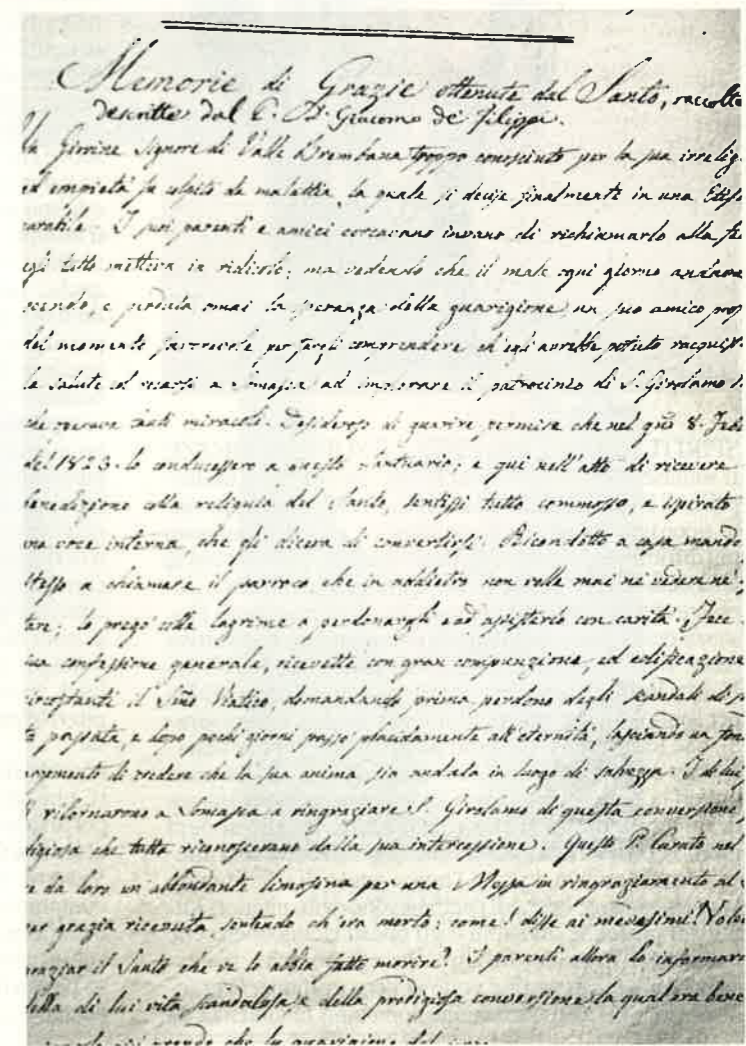 Memorie di Grazie ottenute dal Santo, raccolte
descritte dal P. D. Giacomo de Filippi.
Un Giovine Signore di Valle Brembana troppo conosciuto per la sua irrelig
ed empietà fu colpito da malattia, la quale si decise finalmente in una Etisi
curabile. I suoi parenti e amici cercavano invano di richiamarlo alla fe
egli tutto metteva in ridicolo; ma vedendo che il male ogni giorno andava
scendo, e perduta omai la speranza della guarigione un suo amico prof
del momento favorevole per fargli comprendere ch'egli avrebbe potuto racquist
la salute col recarsi a Somasca ad implorare il patrocinio di S. Girolamo
che operava tanti miracoli. Desideroso di guarire permise che nel gno 8. Feb
del 1823. lo conducessero a questo Santuario; e qui nell'atto di ricevere
benedizione colla reliquia del Santo, sentissi tutto commosso, e ispirato
una voce interna, che gli diceva di convertirsi. Ricondotto a casa mandò
stesso a chiamare il parroco che in addietro non volle mai nè vedere nè
tare; lo pregò colle lagrime a perdonargli ead assisterlo con carità. Fece
sua confessione generale, ricevette con gran compunzione, ed edificazione
circostanti il Sño Viatico, domandando prima perdono degli scandali di s
ta passata, e dopo pochi giorni passò placidamente all'eternità, lasciando un fon
argomento di credere che la sua anima sia andata in luogo di salvezza. I di lui
ritornarono a Somasca a ringraziare S. Girolamo di questa conversione
digiosa che tutta riconoscevano dalla sua intercessione. Questo P. Curato nel
re da loro un abbondante limosina per una Messa in ringraziamento al
per grazia ricevuta, sentendo ch'era morto: come! disse ai medesimi! Vole
graziar il Santo che ve lo abbia fatto morire? I parenti allora lo informaro
della di lui vita scandalosa, e della prodigiosa conversione la qual era bene
più grande che la guarigione del